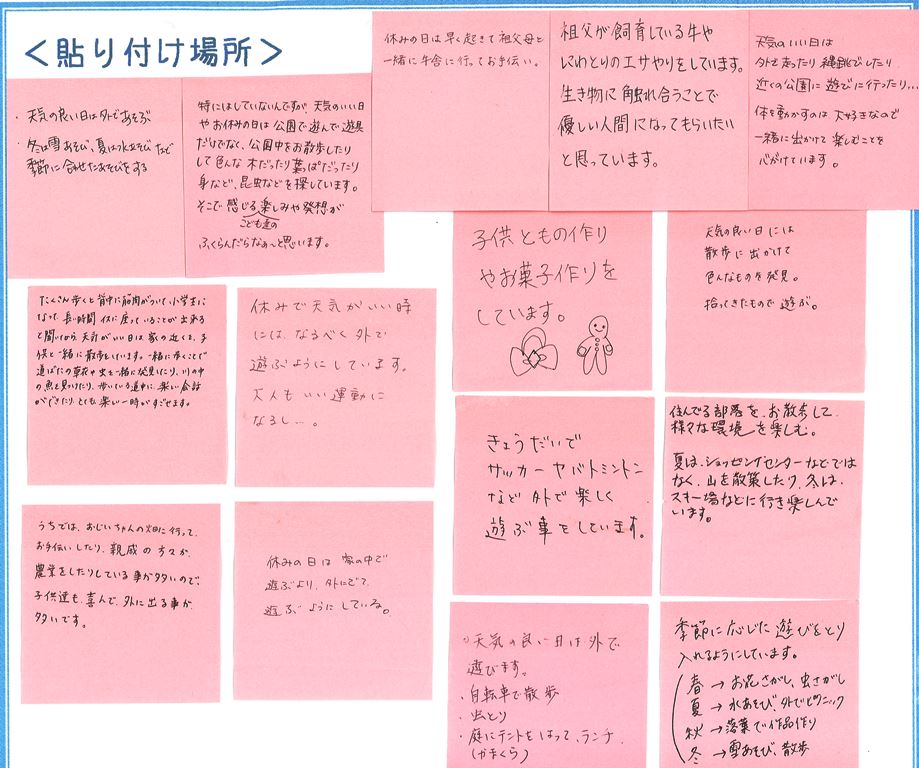 ＜貼り付け場所＞
・天気の良い日は外であそぶ
・冬は雪あそび、夏は水あそびなど
季節に合せたあそびをする
特にはしていないんですが天気のいい日
やお休みの日は公園で遊んで遊具
だけでなく、公園中をお散歩したり
して色んな木だったり葉っぱだったり
身など、昆虫などを探しています。
そこで感じる楽しみや発想が
こども達の
ふくらんだらなぁっと思います。
休みの日は早く起きて祖父母と
一緒に牛舎に行ってお手伝い。
祖父が飼育している牛や
にわとりのエサやりをしています。
生き物に触れ合うことで
優しい人間になってもらいたい
と思っています。
天気のいい日は
外を走ったり縄跳びしたり
近くの公園に遊びに行ったり…
体を動かすのは大好きなので
一緒に出かけて楽しむことを
心がけています。
子供ともの作り
やお菓子作りを
しています。
天気の良い日には
散歩に出かけて
色んなものを発見。
拾ってきたもので遊ぶ。
たくさん歩くと背中に筋肉がついて、小学生に
なって、長い時間イスに座っていることが出来る
と聞いてから天気がいい日は家の近くを、子
供と一緒に散歩をしています。一緒に歩くことで
道ばたの草花や虫を一緒に発見したり、川の中
の魚を見つけたり、歩いている道中に、楽しい会話
ができたりとても楽しい一時がすごせます。
休みで天気がいい時
には、なるべく外で
遊ぶようにしています。
大人もいい運動に
なるし…。
きょうだいで
サッカーやバトミントン
など外で楽しく
遊ぶ事をしています。
住んでる部落を、お散歩して
様々な環境を楽しむ。
夏は、ショッピングセンターなどでは
なく、山を散策したり、冬は、
スキー場などに行き楽しんで
います。
うちでは、おじいちゃんの畑に行って、
お手伝いしたり、親戚の方々が、
農業をしたりしている事が多いので、
子供達も、喜んで、外に出る事が
多いです。
休みの日は家の中で
遊ぶより、外にでて、
遊ぶようにしている。
○天気の良い日は外で
遊びます。
・自転車で散歩
・虫とり
・庭にテントをはって、ランチ
(かまくら)
季節に応じた遊びをとり
入れるようにしています。
春→お花さがし、虫さがし
夏→水あそび、外でピクニック
秋→落葉で作品作り
冬→雪あそび、散歩